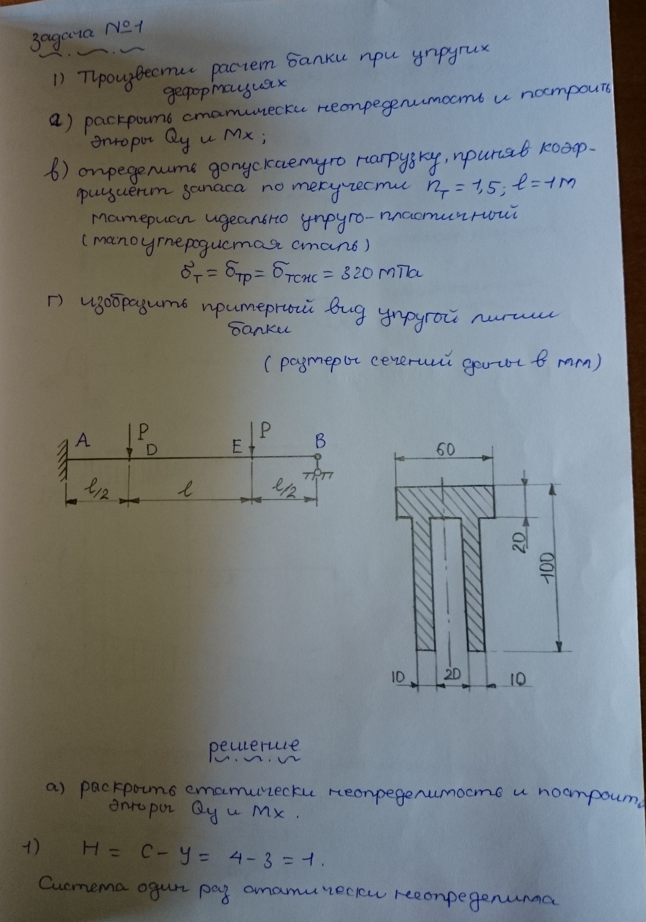 задача №1
1) Произвести расчет балки при упругих
деформациях
а) раскрыть статически неопределимость и построить
эпюры Qy и Mx;
в) определить допускаемую нагрузку, приняв коэф-
фициент запаса по текучести nт = 1,5; l = 1м
материал идеально упруго-пластичный
(малоуглеродистая сталь)
σт = σтр = σтсж = 320 мПа
г) изобразить примерный вид упругой линии
балки
(размеры сечений даны в мм)
A P D E P B
l/2 l l/2
60
20
100
10 20 10
решение
а) раскрыть статически неопределимость и построить
эпюры Qy и Mx.
1) H = C - У = 4 - 3 = 1.
Система один раз статически неопределима